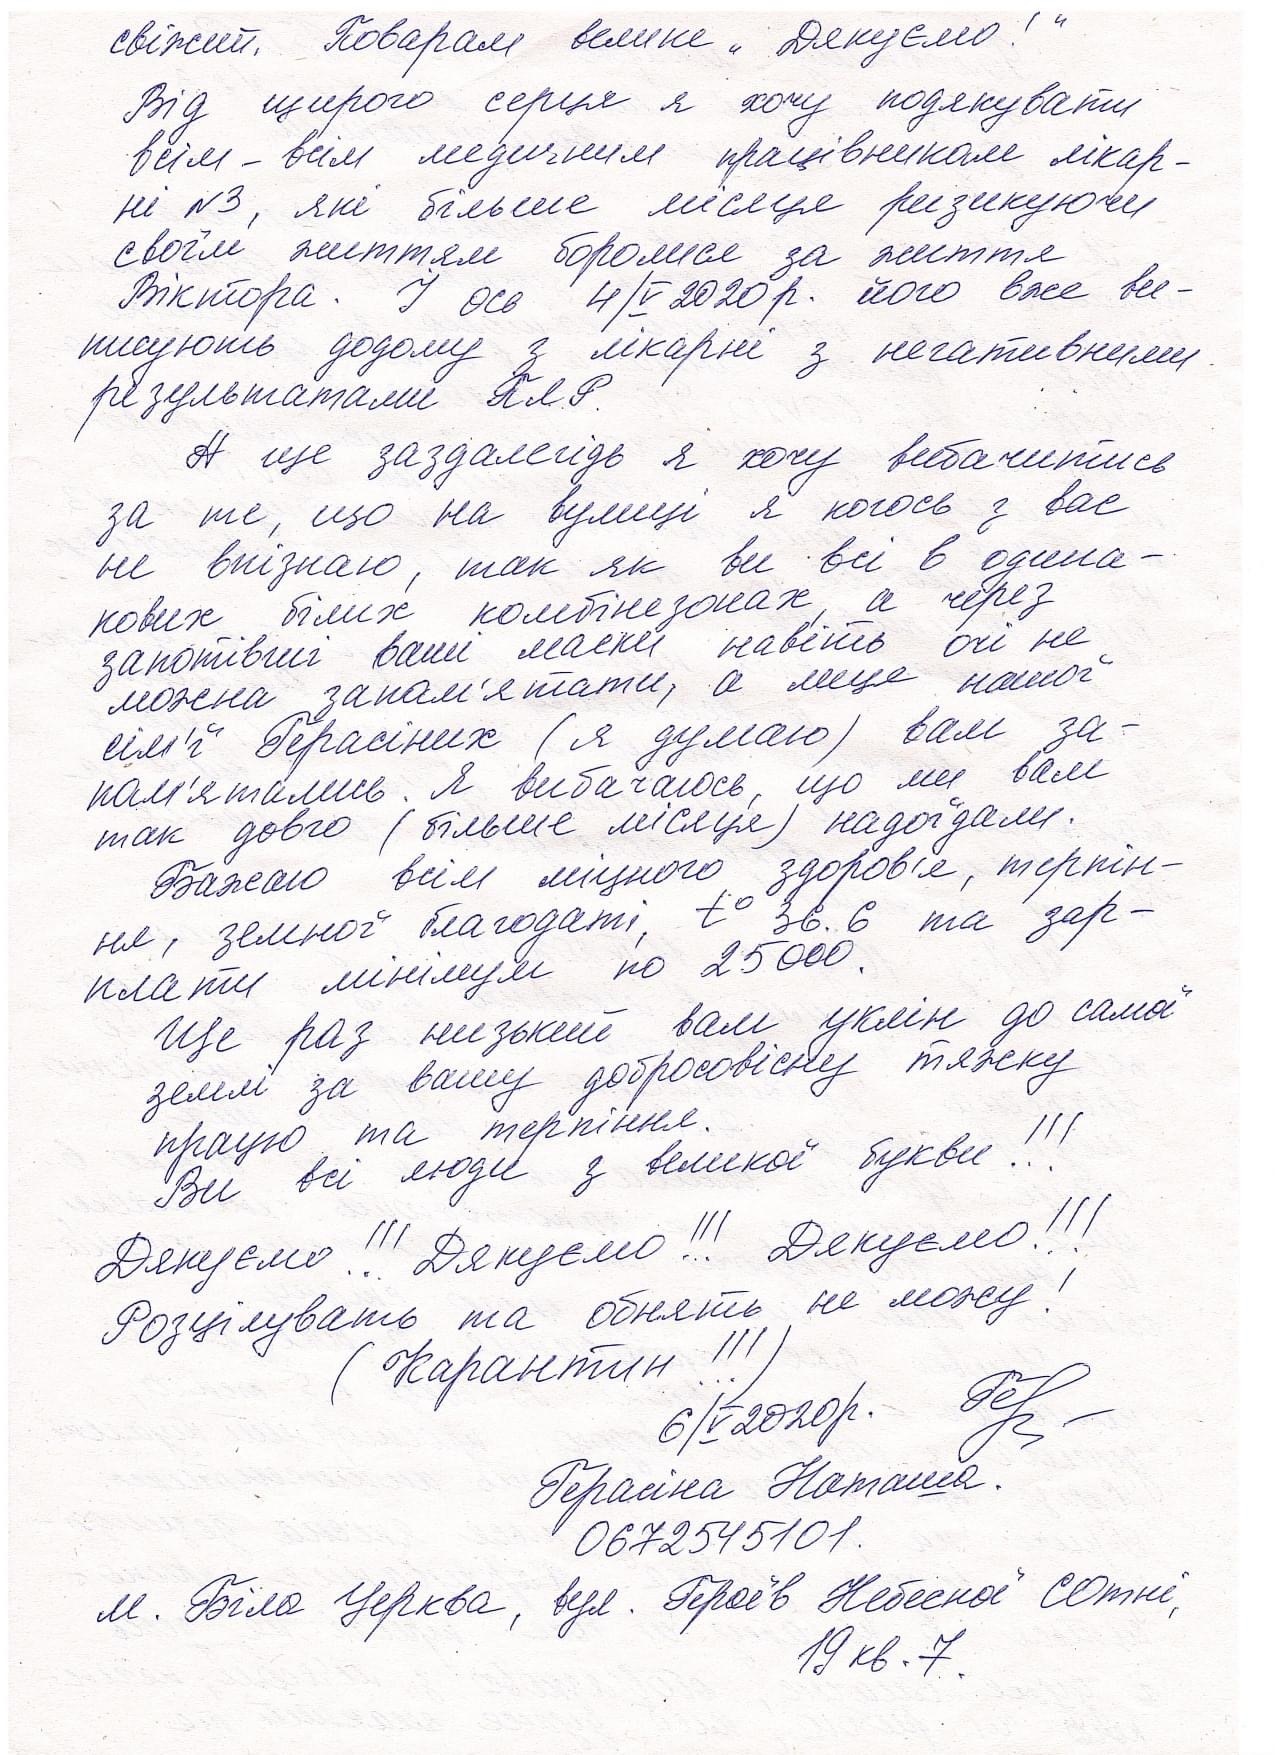 свіжий. Поварам велике „Дякуємо!"
Від щирого серця я хочу подякувати
всім-всім медичним працівникам лікар-
ні №3, які більше місяця ризикуючи
своїм життям боролися за життя
Віктора. І ось 4/V 2020р. його вже ви-
писують додому з лікарні з негативними
результатами ПЛР.
А ще заздалегідь я хочу вибачитись
за те, що на вулиці я когось з вас
не впізнаю, так як ви всі в одина-
кових білих комбінезонах, а через
запотівші ваші маски навіть очі не
можна запам'ятати, а лиця нашої
сім'ї Герасіних (я думаю) вам за-
пам'ятались. Я вибачаюсь, що ми вам
так довго (більше місяця) надоїдали.
Бажаю всім міцного здоров'я, терпін-
ня, земної благодаті, t° 36.6 та зар-
плати мінімум по 25000.
Ще раз низький вам уклін до самої
землі за вашу добросовісну тяжку
працю та терпіння.
Ви всі люди з великої букви!!!
Дякуємо!!! Дякуємо!!! Дякуємо!!!
Розцілувать та обнять не можу!
(Карантин!!!)
6/V 2020р.
Герасіна Наташа.
0672545101.
м. Біла Церква, вул. Героїв Небесної Сотні,
19 кв. 7.